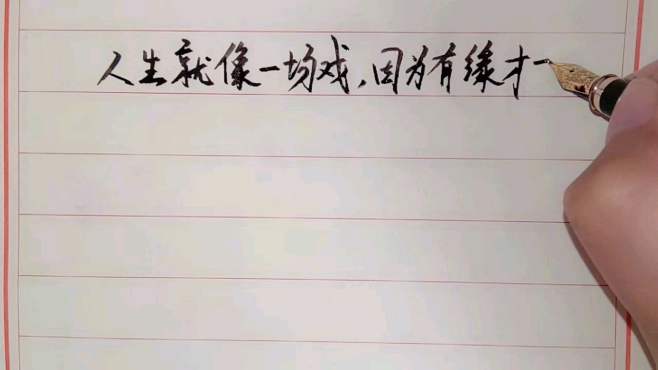 人生就像一场戏,因为有缘才